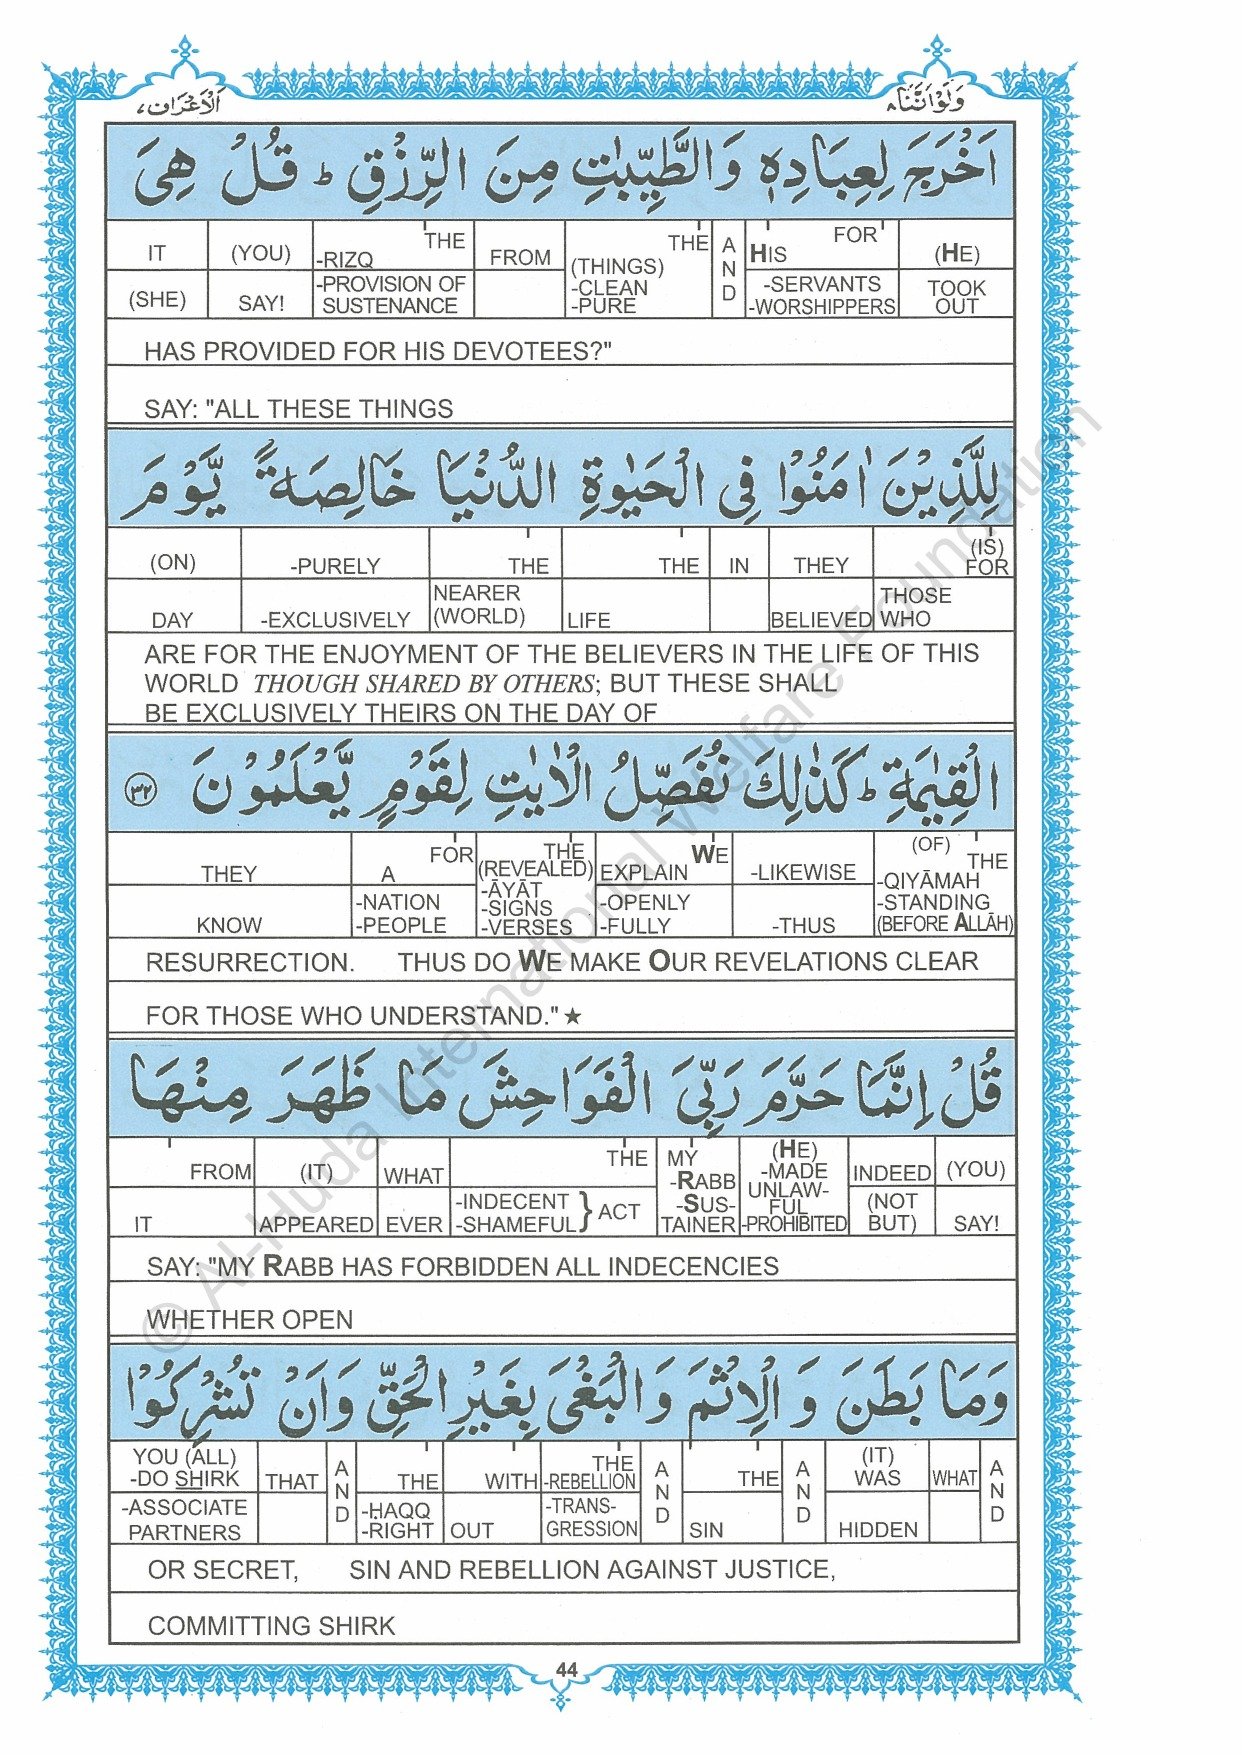 وَلَوْ اَنَّنَا ٨
اَلْاَعْرَاف ٧
اَخْرَجَ لِعِبَادِهٖ وَالطَّيِّبٰتِ مِنَ الرِّزْقِ ؕ قُلْ هِىَ
IT (YOU) -RIZQ THE FROM (THINGS) THE AND HIS FOR (HE)
(SHE) SAY! -PROVISION OF SUSTENANCE -CLEAN -PURE -SERVANTS -WORSHIPPERS TOOK OUT
HAS PROVIDED FOR HIS DEVOTEES?"
SAY: "ALL THESE THINGS
لِلَّذِيْنَ اٰمَنُوْا فِى الْحَيٰوةِ الدُّنْيَا خَالِصَةً يَّوْمَ
(ON) -PURELY THE THE IN THEY (IS) FOR
DAY -EXCLUSIVELY NEARER (WORLD) LIFE BELIEVED THOSE WHO
ARE FOR THE ENJOYMENT OF THE BELIEVERS IN THE LIFE OF THIS
WORLD THOUGH SHARED BY OTHERS; BUT THESE SHALL
BE EXCLUSIVELY THEIRS ON THE DAY OF
الْقِيٰمَةِ ؕ كَذٰلِكَ نُفَصِّلُ الْاٰيٰتِ لِقَوْمٍ يَّعْلَمُوْنَ ٣٢
THEY A FOR THE (REVEALED) EXPLAIN WE -LIKEWISE (OF) THE
KNOW -NATION -PEOPLE -ĀYĀT -SIGNS -VERSES -OPENLY -FULLY -THUS -QIYĀMAH -STANDING (BEFORE ALLĀH)
RESURRECTION. THUS DO WE MAKE OUR REVELATIONS CLEAR
FOR THOSE WHO UNDERSTAND."★
قُلْ اِنَّمَا حَرَّمَ رَبِّىَ الْفَوَاحِشَ مَا ظَهَرَ مِنْهَا
FROM (IT) WHAT THE MY -RABB (HE) -MADE UNLAW- INDEED (YOU)
IT APPEARED EVER -INDECENT -SHAMEFUL } ACT -SUS- TAINER FUL -PROHIBITED (NOT BUT) SAY!
SAY: "MY RABB HAS FORBIDDEN ALL INDECENCIES
WHETHER OPEN
وَمَا بَطَنَ وَ الْاِثْمَ وَ الْبَغْىَ بِغَيْرِ الْحَقِّ وَاَنْ تُشْرِكُوْا
YOU (ALL) -DO SHIRK THAT AND THE WITH THE -REBELLION AND THE AND (IT) WAS WHAT AND
-ASSOCIATE PARTNERS -ḤAQQ -RIGHT OUT -TRANS- GRESSION SIN HIDDEN
OR SECRET, SIN AND REBELLION AGAINST JUSTICE,
COMMITTING SHIRK
44
© Al-Huda International Welfare Foundation